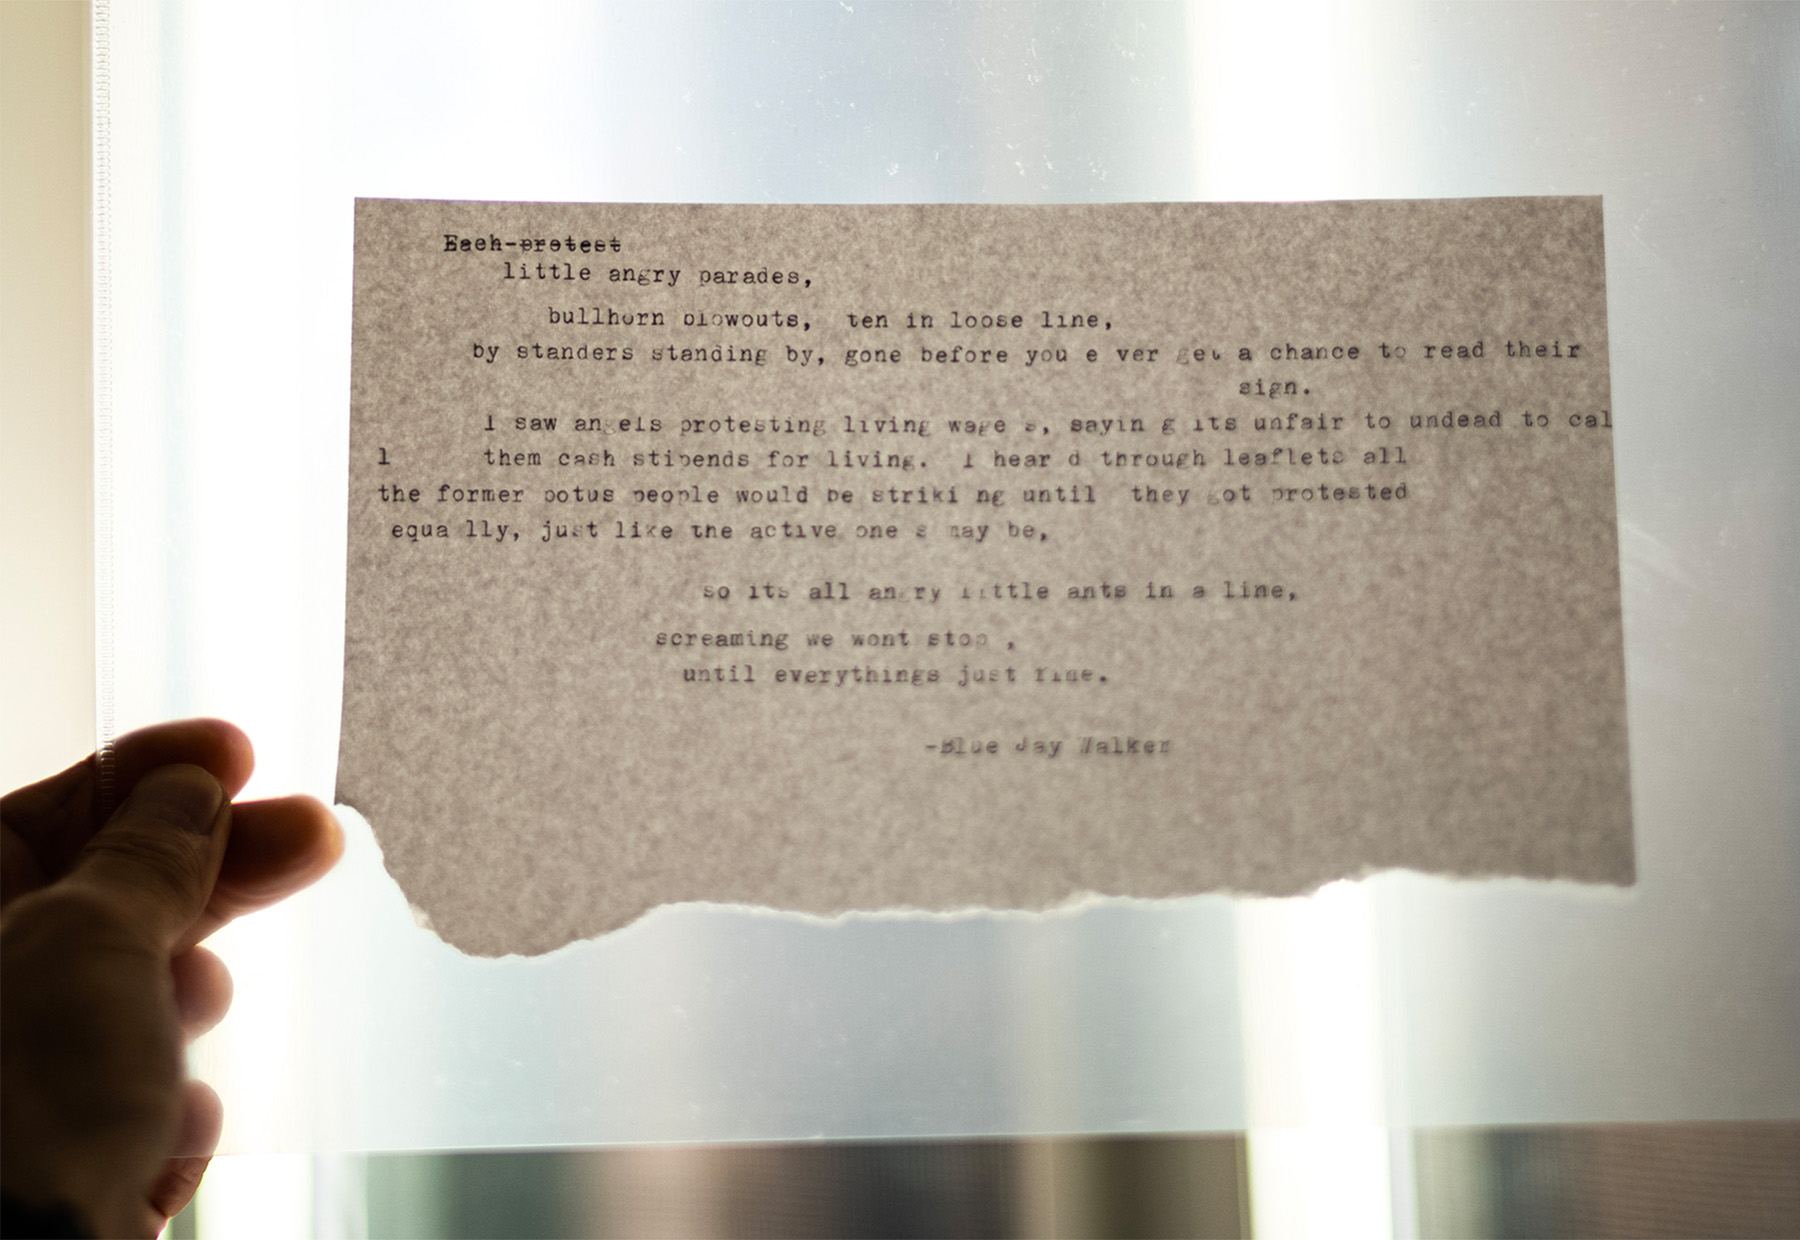 Each-protest
little angry parades,
bullhorn blowouts, ten in loose line,
by standers standing by, gone before you e ver get a chance to read their
sign.
I saw angels protesting living wage s, sayin g its unfair to undead to cal
l them cash stipends for living. I hear d through leaflets all
the former potus people would be striki ng until they got protested
equa lly, just like the active one s may be,
so its all angry little ants in a line,
screaming we wont stop ,
until everythings just fine.
-Blue Jay Walker